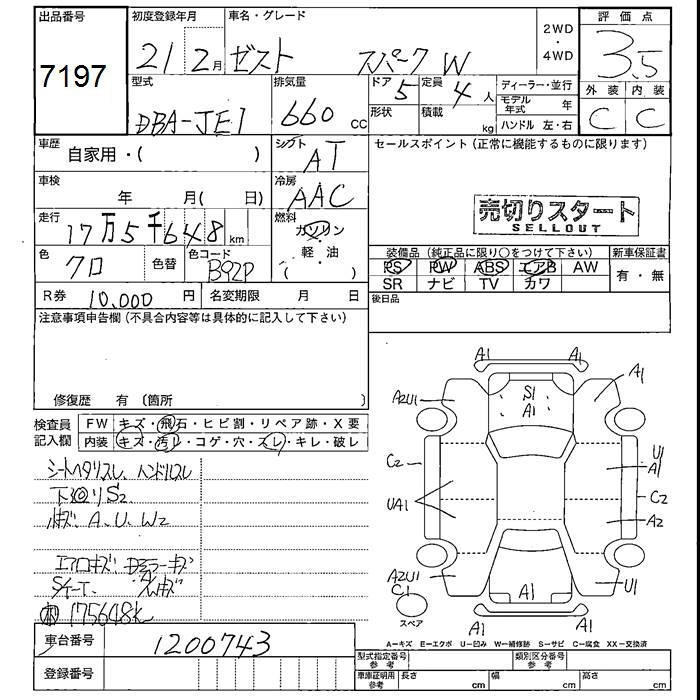 出品番号 7197
初度登録年月 21 2月
車名・グレード ゼスト スパーク W
2WD・4WD
評価点 3.5
型式 DBA-JE1
排気量 660 cc
ドア 5
形状
定員 4人
積載 kg
ディーラー・並行
モデル年式 年
ハンドル 左・右
外装 内装
C C
車歴 自家用・( )
シフト AT
セールスポイント(正常に機能するものに限ります)
車検 年 月( 日)
冷房 AAC
売切りスタート
SELLOUT
走行 17万5千648km
燃料 ガソリン・軽油 ( )
色 クロ
色替
色コード B92P
装備品(純正品に限り○をつけて下さい)
新車保証書
PS PW ABS エアB AW
有・無
SR ナビ TV カワ
R券 10,000円
名変期限 月 日
後日品
注意事項申告欄(不具合内容等は具体的に記入して下さい)
修復歴 有〔箇所 〕
検査員記入欄
FW キズ・飛石・ヒビ割・リペア跡・X要
内装 キズ・汚レ・コゲ・穴・スレ・キレ・破レ
シートヘタリスレ、ハンドルスレ
下廻りS2
A、U、W2
エアロキズ ドアミラーキズ
175648K
A1 A1
A2U1 S1 A1 A1
C2 U1 A1
UA1 C2
A2
A2U1 C1 A1 U1
スペア A1 A1
車台番号 1200743
登録番号
A-キズ E-エクボ U-凹み W-補修跡 S-サビ C-腐食 XX-交換済
型式指定番号 参考
類別区分番号 参考
車庫証明用 参考 長さ cm 幅 cm 高さ cm